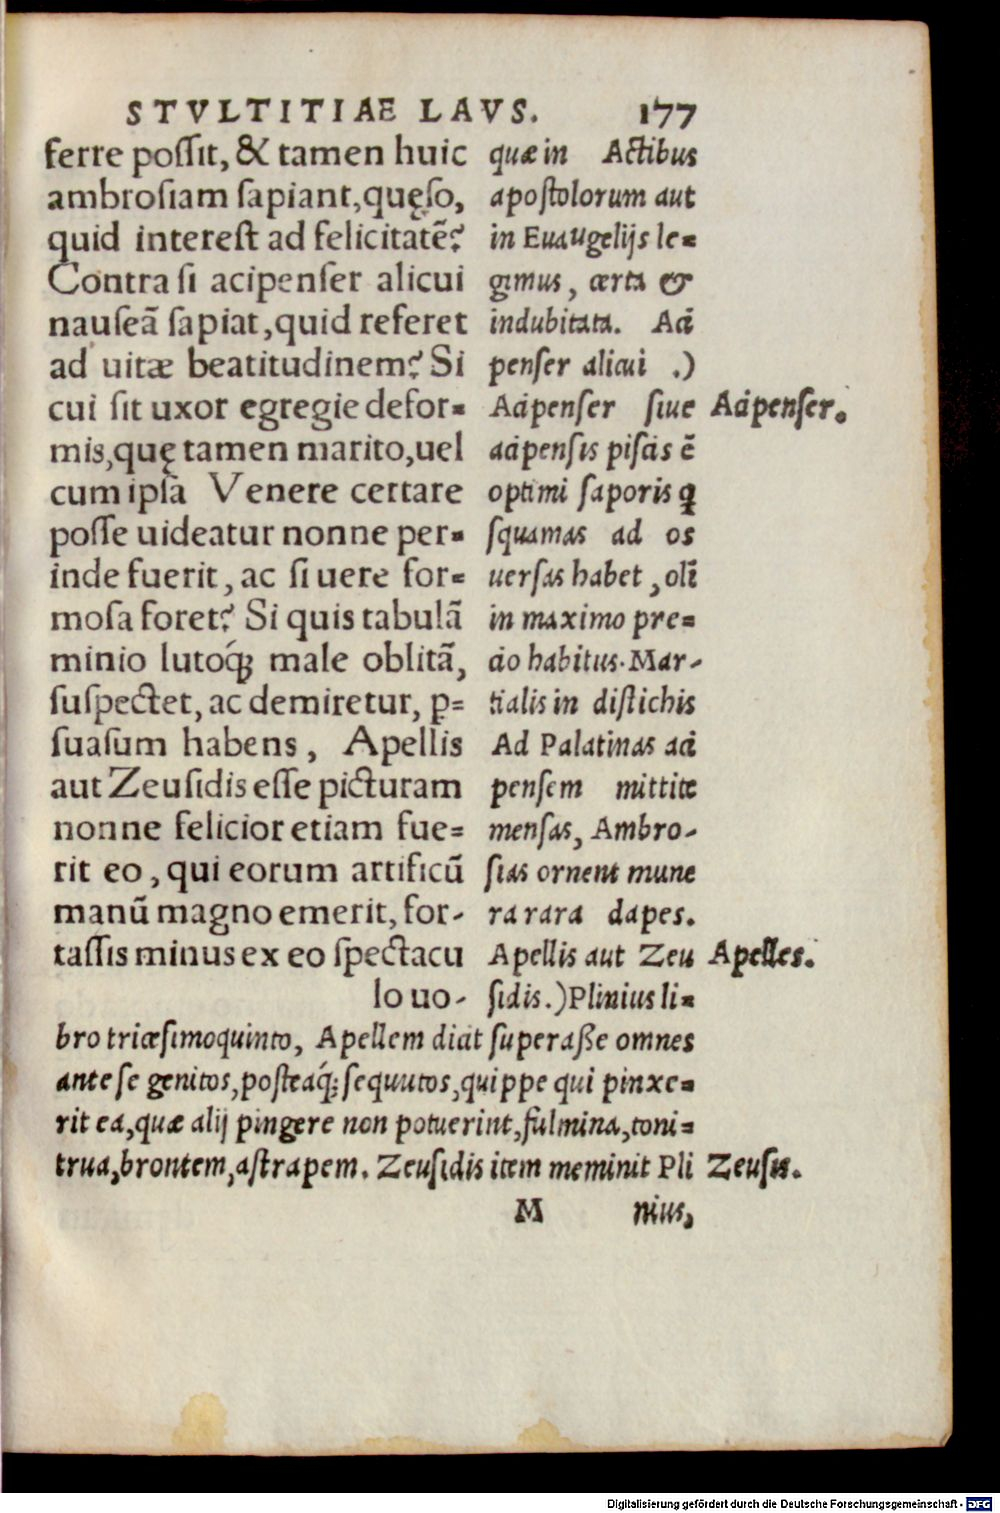 STVLTITIAE LAVS. 177
ferre poſſit, & tamen huic
ambroſiam ſapiant, quęſo,
quid intereſt ad felicitatē?
Contra ſi acipenſer alicui
nauſeā ſapiat, quid referet
ad uitæ beatitudinem? Si
cui ſit uxor egregie defor-
mis, quę tamen marito, uel
cum ipſa Venere certare
poſſe uideatur nonne per-
inde fuerit, ac ſi uere for-
moſa foret? Si quis tabulā
minio lutoq́; male oblitā,
ſuſpectet, ac demiretur, ꝑ-
ſuaſum habens, Apellis
aut Zeuſidis eſſe picturam
nonne felicior etiam fue-
rit eo, qui eorum artificū
manū magno emerit, for-
taſſis minus ex eo ſpectacu
lo uo-
quæ in Actibus
apoſtolorum aut
in Euaugelijs le-
gimus, certa &
indubitata. Aci
penſer alicui .)
Acipenſer ſiue
acipenſis piſcis ē
optimi ſaporis q
ſquamas ad os
uerſas habet, oli
in maximo pre-
cio habitus. Mar-
tialis in diſtichis
Ad Palatinas aci
penſem mittite
menſas, Ambro-
ſias ornent mune
ra rara dapes.
Apellis aut Zeu
ſidis.) Plinius li-
bro triceſimoquinto, Apellem dicit ſuperaſſe omnes
ante ſe genitos, poſteaq́; ſequutos, quippe qui pinxe-
rit ea, quæ alij pingere non potuerint, fulmina, toni-
trua, brontem, aſtrapem. Zeuſidis item meminit Pli
M nius,
Acipenſer.
Apelles.
Zeuſis.
Digitalisierung gefördert durch die Deutsche Forschungsgemeinschaft - DFG